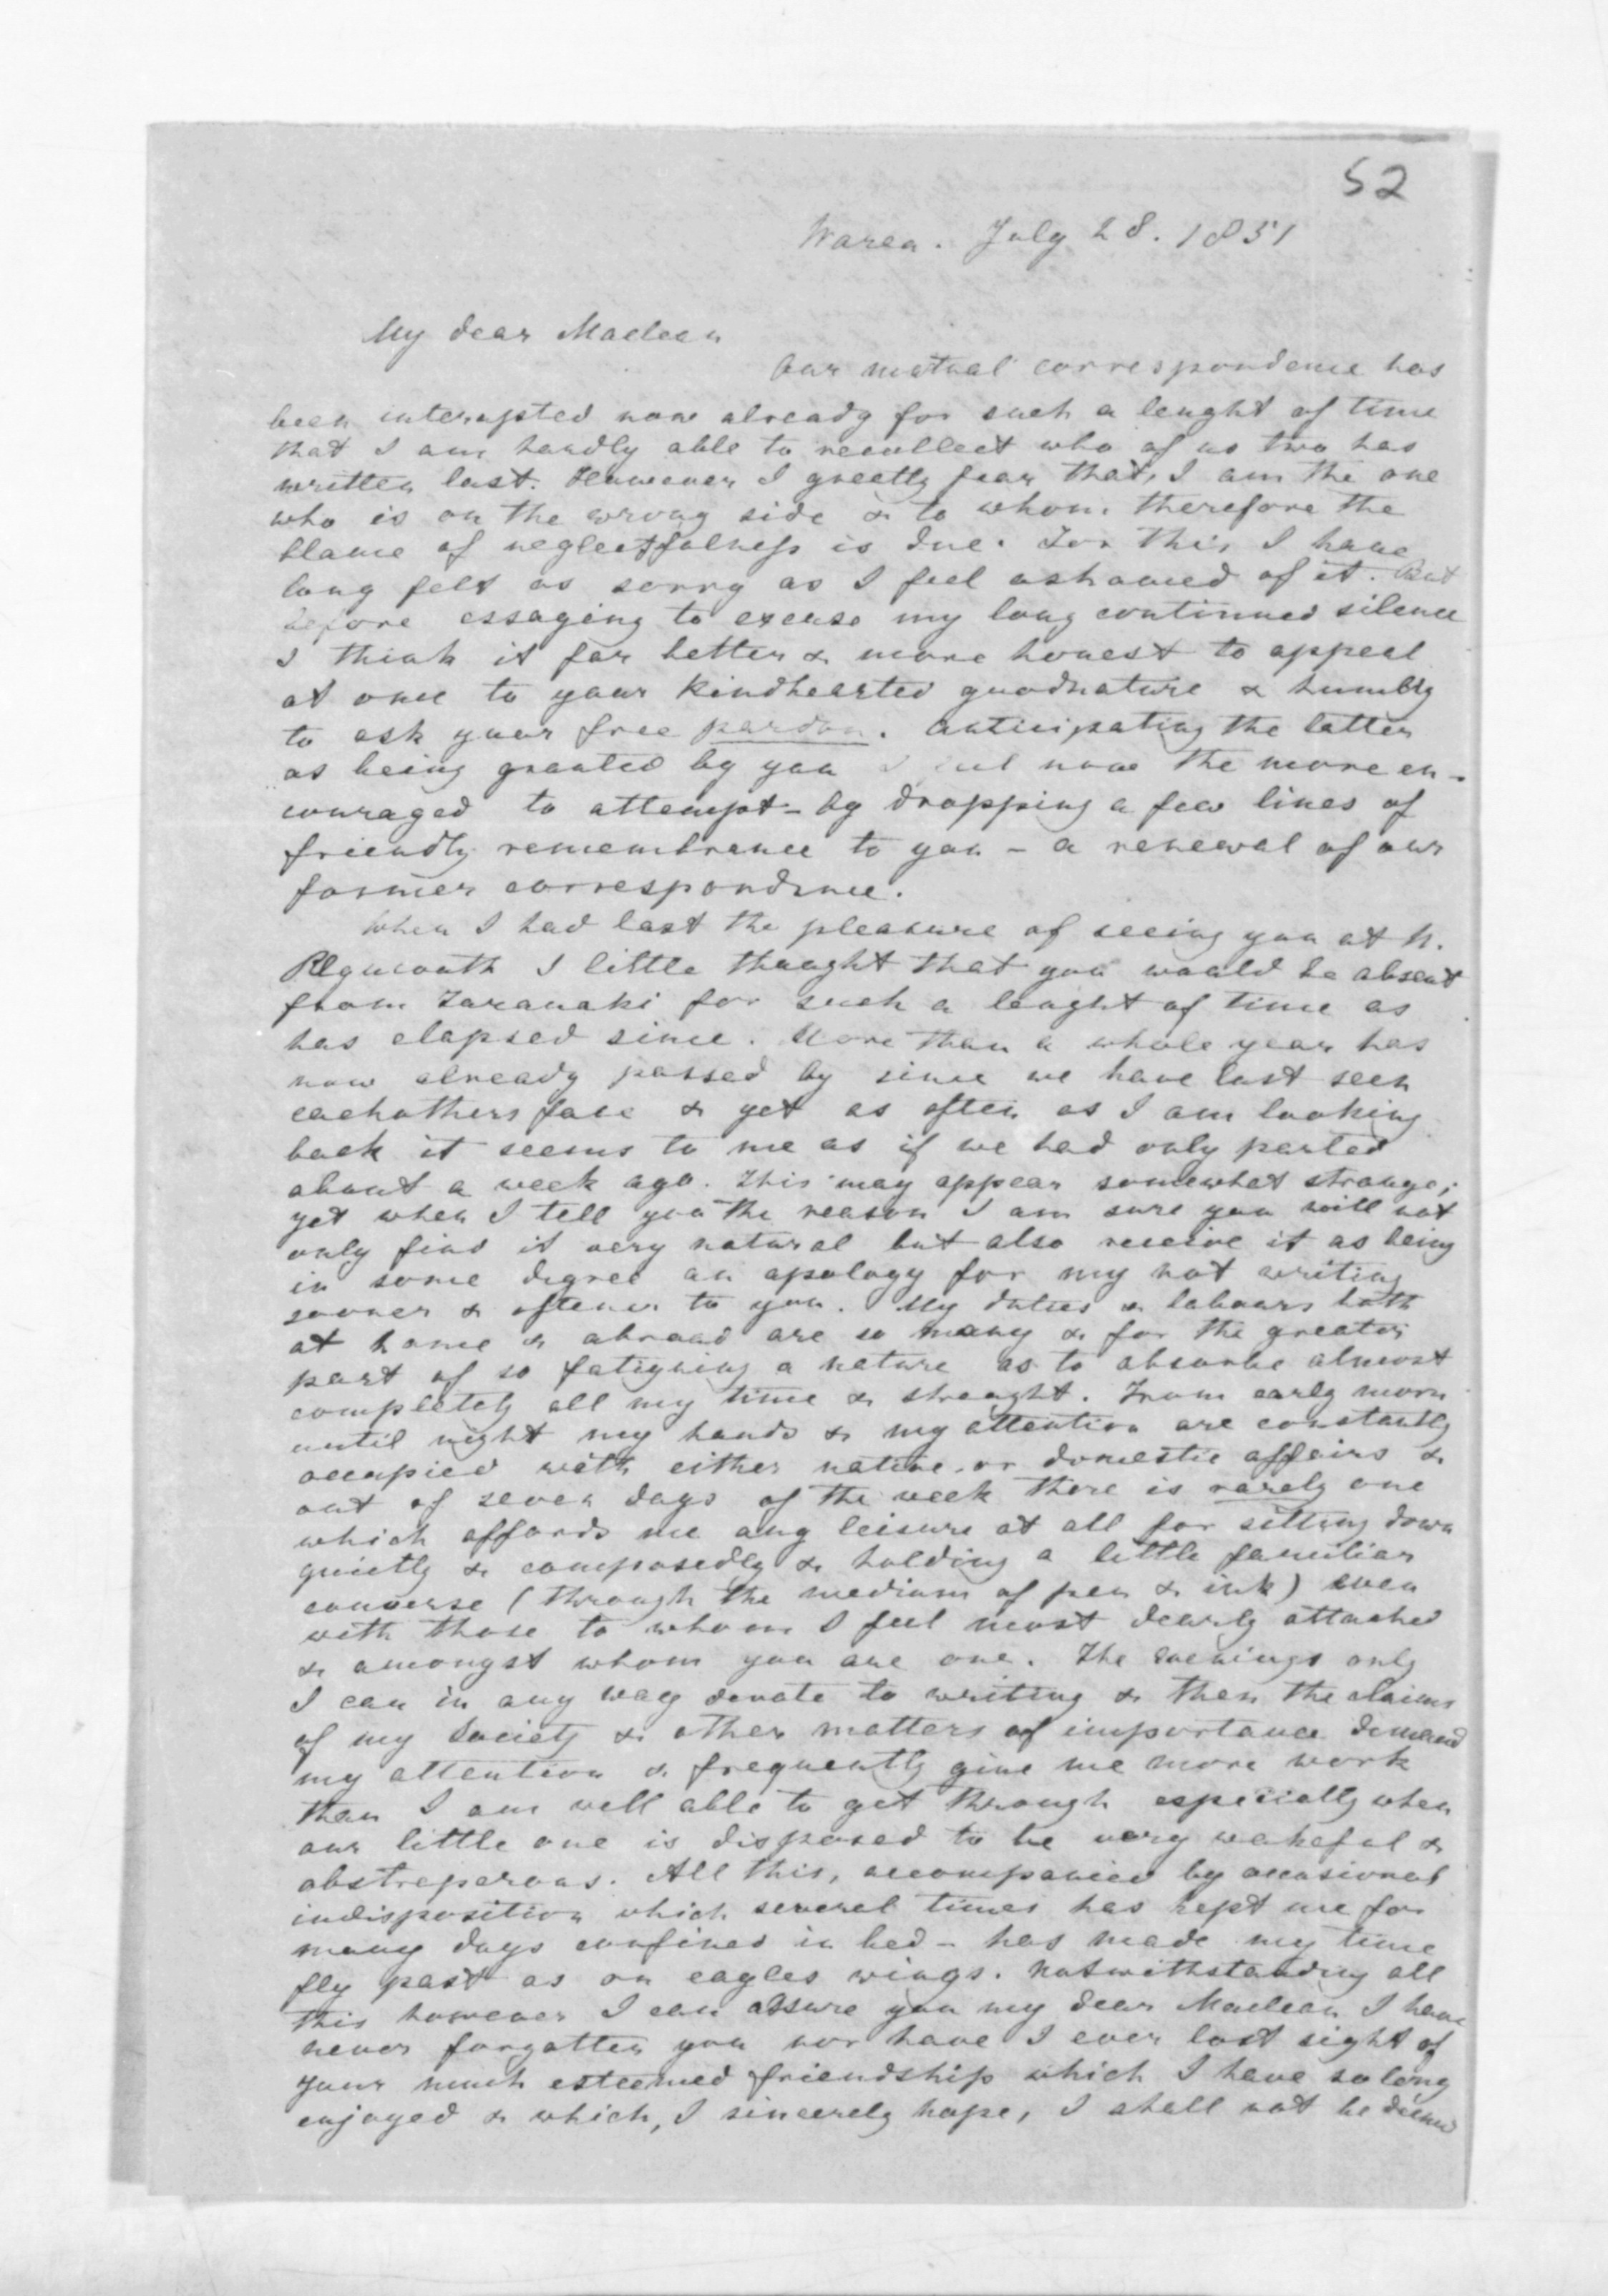 52
Warea. July 28. 1851
My dear Maclean
Our mutual correspondence has
been interupted now already for such a lenght of time
that I am hardly able to recollect who of us two has
written last. However I greatly fear that, I am the one
who is on the wrong side & to whom therefore the
blame of neglectfulness is due. For this I have
long felt as sorry as I feel ashamed of it. But
before essaying to excuse my long continued silence
I think it far better & more honest to appeal
at once to your kindhearted goodnature & humbly
to ask your free pardon. Anticipating the latter
as being granted by you I feel now the more en-
couraged to attempt - by dropping a few lines of
friendly remembrance to you - a renewal of our
former correspondence.
When I had last the pleasure of seeing you at N.
Plymouth I little thought that you would be absent
from Taranaki for such a lenght of time as
has elapsed since. More than a whole year has
now already passed by since we have last seen
eachothers face & yet as often as I am looking
back it seems to me as if we had only parted
about a week ago. This may appear somewhat strange;
yet when I tell you the reason I am sure you will not
only find it very natural but also receive it as being
in some degree an apology for my not writing
sooner & oftener to you. My duties & labours both
at home & abroad are so many & for the greater
part of so fatiguing a nature as to absorbe almost
completely all my time & strenght. From early morn
until night my hands & my attention are constantly
occupied with either native or domestic affairs &
out of seven days of the week there is rarely one
which affords me any leisure at all for sitting down
quietly & composedly & holding a little familiar
converse (through the medium of pen & ink) even
with those to whom I feel most dearly attached
& amongst whom you are one. The evenings only
I can in any way devote to writing & then the claims
of my Society & other matters of importance demand
my attention & frequently give me more work
than I am well able to get through especially when
our little one is disposed to be very wakeful &
obstreperous. All this, accompanied by occasional
indisposition which several times has kept me for
many days confined in bed - has made my time
fly past as on eagles wings. Notwithstanding all
this however I can assure you my dear Maclean I have
never forgotten you nor have I ever lost sight of
your much esteemed friendship which I have so long
enjoyed & which, I sincerely hope, I shall not be deemed